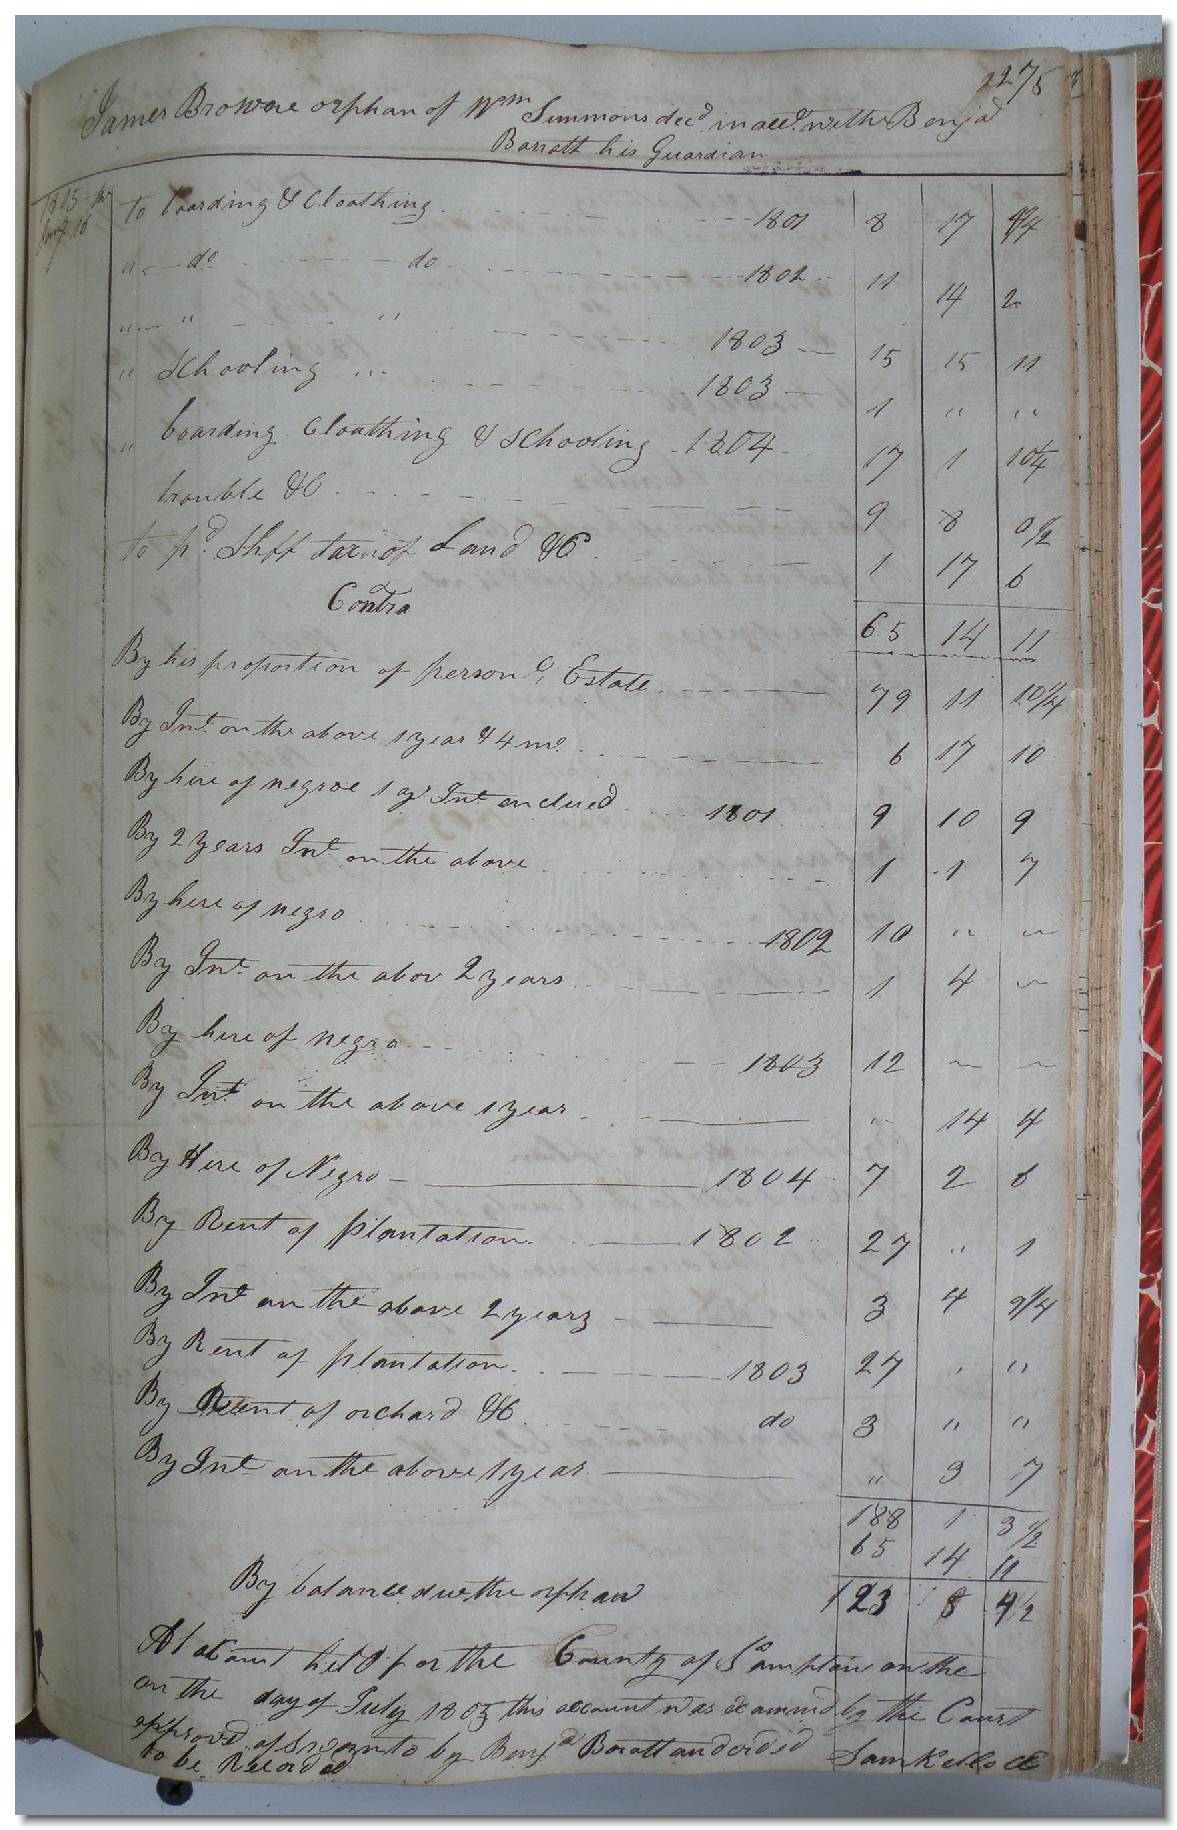 275
James Browne orphan of Wm Simmons decd in acct with Benja
Barratt his Guardian
To boarding & Cloathing 1801 8 17
" do do 1802 11 14 2
" " " 1803 15 15 11
" Schooling 1803 1 " "
" boarding Cloathing & Schooling 1804 17 1 10 1/4
trouble &C 9 8 0 1/2
To pd. Shff tax of Land &C 1 17 6
Contra 65 14 11
By his proportion of personl Estate 79 11 10 1/4
By Int on the above 1 year & 4 mo 6 17 10
By hire of negroe 1 yr Int 1801 9 10 9
By 2 years Int on the above 1 1 7
By here of negro 1802 10 " "
By Int on the abov 2 years 1 4 "
By here of negro 1803 12 " "
By Int on the above 1 year " 14 4
By Hire of Negro 1804 7 2 6
By Rent of plantation 1802 27 " 1
By Int on the above 2 years 3 4 9 1/4
By Rent of plantation 1803 27 " "
By Rent of orchard &C do 3 " "
By Int on the above 1 year " 9 7
188 1 3 1/2
65 14 11
By balance due the orphan 123 8 4 1/2
At a Court held for the County of on the
on the day of July 1805 this account was examined by the Court
approved & sworn to by Benja Boratt and orded
to be Recorded